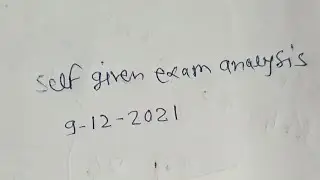 self given exam analysis
9-12-2021